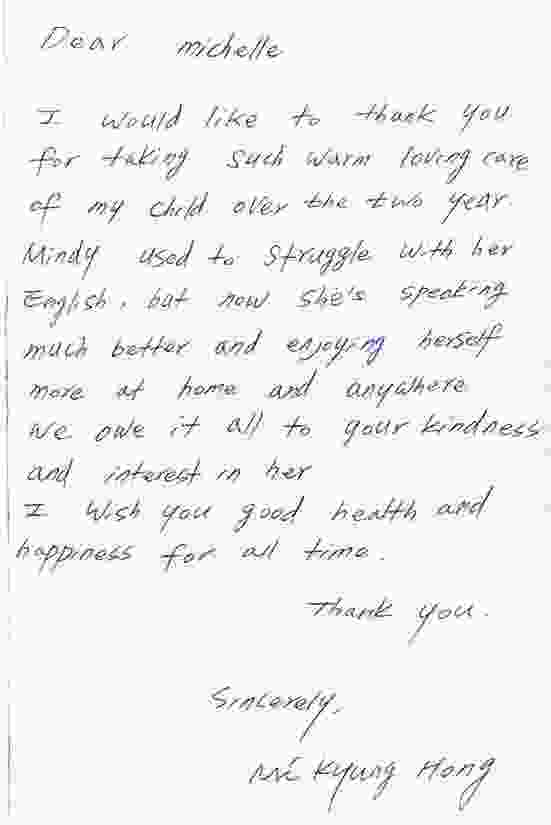 Dear michelle
I would like to thank you
for taking such warm loving care
of my child over the two year.
Mindy used to struggle with her
English, but now she's speaking
much better and enjoying herself
more at home and anywhere
we owe it all to your kindness
and interest in her
I wish you good health and
happiness for all time.
Thank you.
Sincerely,
Mi Kyung Hong